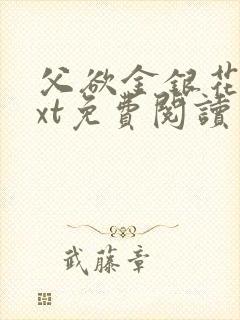 父欲金銀花
xt免費閱讀
武藤章